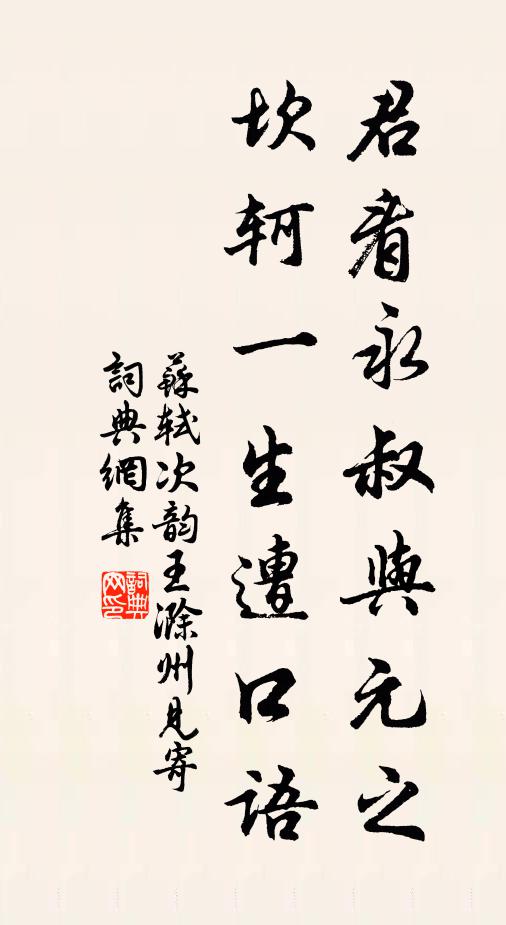 君看永叔與元之
坎軻一生遭口語
蘇軾次韵王滁州見寄
詞典網集
詞典网印